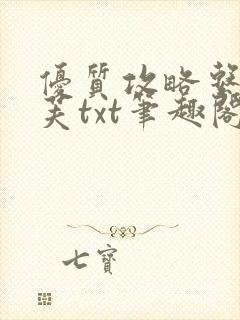 優質攻略整
芙txt筆趣閣
七寶